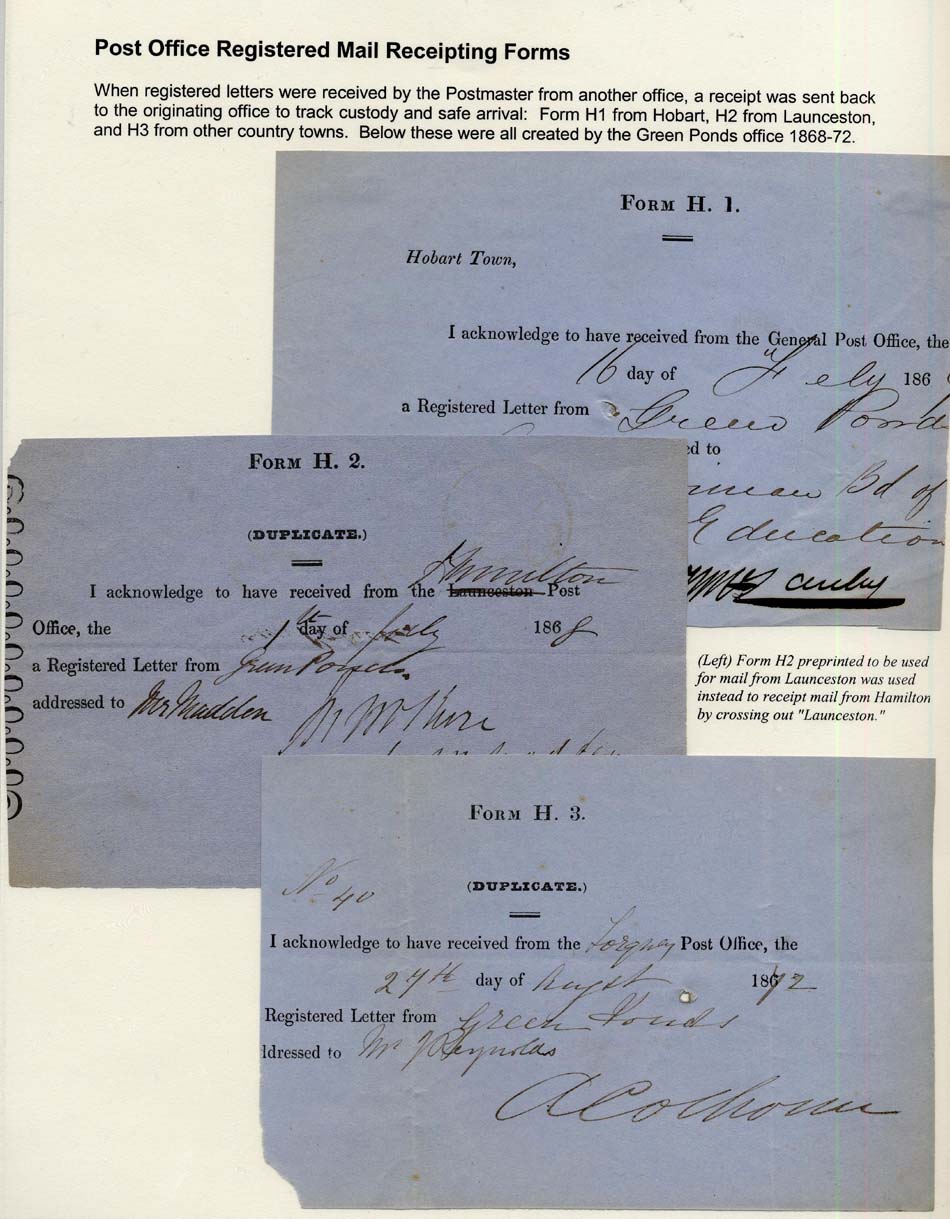 Post Office Registered Mail Receipting Forms
When registered letters were received by the Postmaster from another office, a receipt was sent back
to the originating office to track custody and safe arrival:  Form H1 from Hobart, H2 from Launceston,
and H3 from other country towns.  Below these were all created by the Green Ponds office 1868-72.
FORM H. 1.
Hobart Town,
I acknowledge to have received from the General Post Office, the
16 day of Feby 186
a Registered Letter from Green Pond
ed to
man Bd of
Education
FORM H. 2.
(DUPLICATE.)
Hamilton
I acknowledge to have received from the Launceston Post
Office, the 1th day of July 1868
a Registered Letter from Green Ponds
addressed to Mr Madden
(Left) Form H2 preprinted to be used
for mail from Launceston was used
instead to receipt mail from Hamilton
by crossing out "Launceston."
FORM H. 3.
No 40
(DUPLICATE.)
I acknowledge to have received from the Torquay Post Office, the
27th day of Augst 1872
Registered Letter from Green Ponds
ddressed to Mr J Reynolds